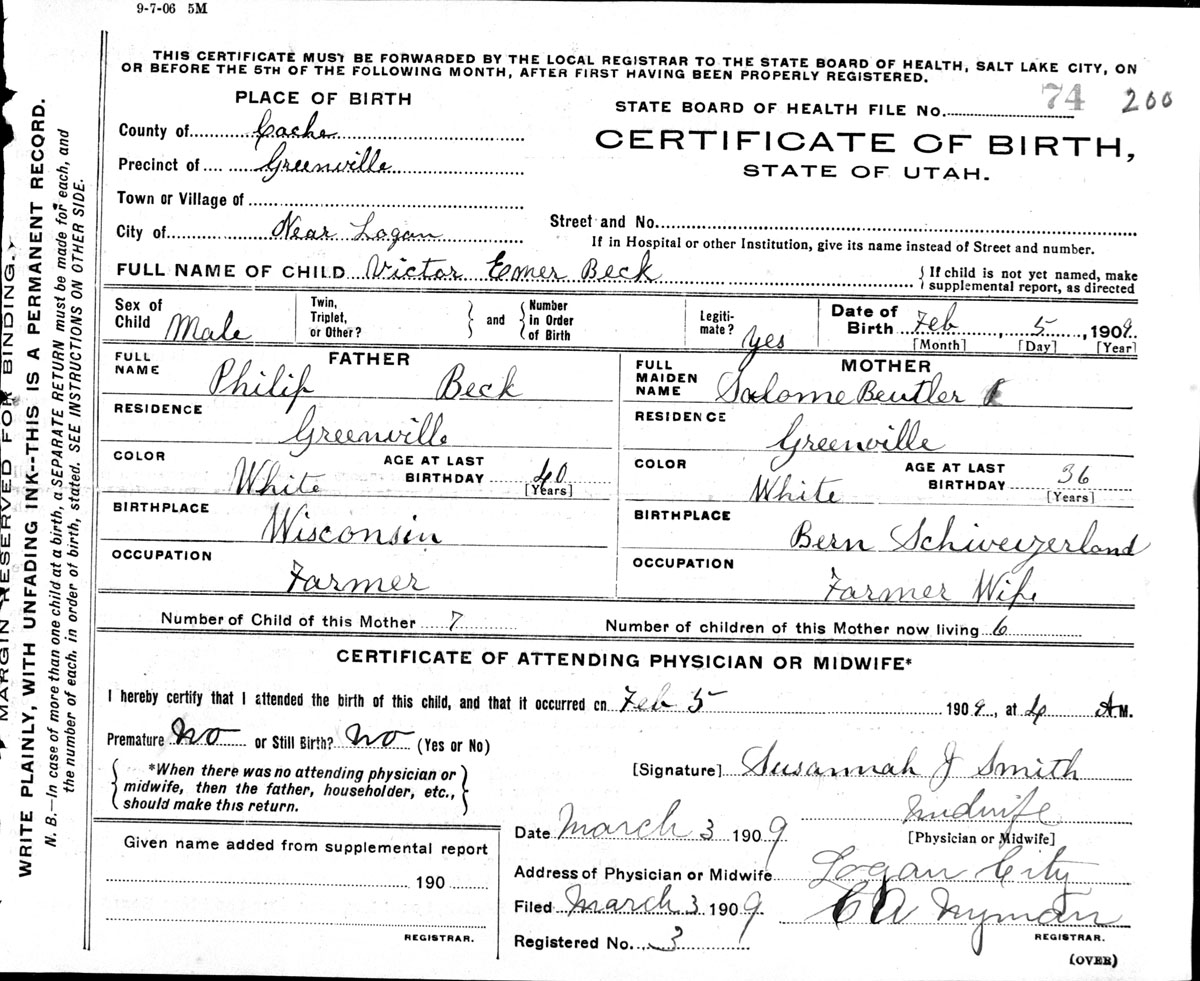 9-7-06 5M
THIS CERTIFICATE MUST BE FORWARDED BY THE LOCAL REGISTRAR TO THE STATE BOARD OF HEALTH, SALT LAKE CITY, ON
OR BEFORE THE 5TH OF THE FOLLOWING MONTH, AFTER FIRST HAVING BEEN PROPERLY REGISTERED.
PLACE OF BIRTH
STATE BOARD OF HEALTH FILE No. 74 200
County of Cache
CERTIFICATE OF BIRTH,
Precinct of Greenville
STATE OF UTAH.
Town or Village of
Street and No.
City of Near Logan
If in Hospital or other Institution, give its name instead of Street and number.
FULL NAME OF CHILD Victor Esmer Beck
{ If child is not yet named, make
supplemental report, as directed
Sex of Child Male
Twin, Triplet, or Other?
} and {
Number in Order of Birth
Legiti-mate? yes
Date of Birth Feb, 5, 1909
[Month] [Day] [Year]
FATHER
FULL NAME Philip Beck
RESIDENCE
Greenville
COLOR White AGE AT LAST BIRTHDAY 40
[Years]
BIRTHPLACE
Wisconsin
OCCUPATION
Farmer
MOTHER
FULL MAIDEN NAME Salome Beutler
RESIDENCE
Greenville
COLOR White AGE AT LAST BIRTHDAY 36
[Years]
BIRTHPLACE
Bern Schiweizerland
OCCUPATION
Farmer Wife
Number of Child of this Mother 7 Number of children of this Mother now living 6
CERTIFICATE OF ATTENDING PHYSICIAN OR MIDWIFE*
I hereby certify that I attended the birth of this child, and that it occurred on Feb 5 1909, at 4 AM.
Premature No or Still Birth? No (Yes or No)
{ *When there was no attending physician or
midwife, then the father, householder, etc.,
should make this return. }
[Signature] Susannah J Smith
midwife
[Physician or Midwife]
Date March 3 1909
Address of Physician or Midwife Logan City
Filed March 3 1909 C A Nyman
REGISTRAR.
Registered No. 3
(OVER)
Given name added from supplemental report
190
REGISTRAR.
MARGIN RESERVED FOR BINDING.
WRITE PLAINLY, WITH UNFADING INK--THIS IS A PERMANENT RECORD.
N. B.—In case of more than one child at a birth, a SEPARATE RETURN must be made for each, and
the number of each, in order of birth, stated. SEE INSTRUCTIONS ON OTHER SIDE.